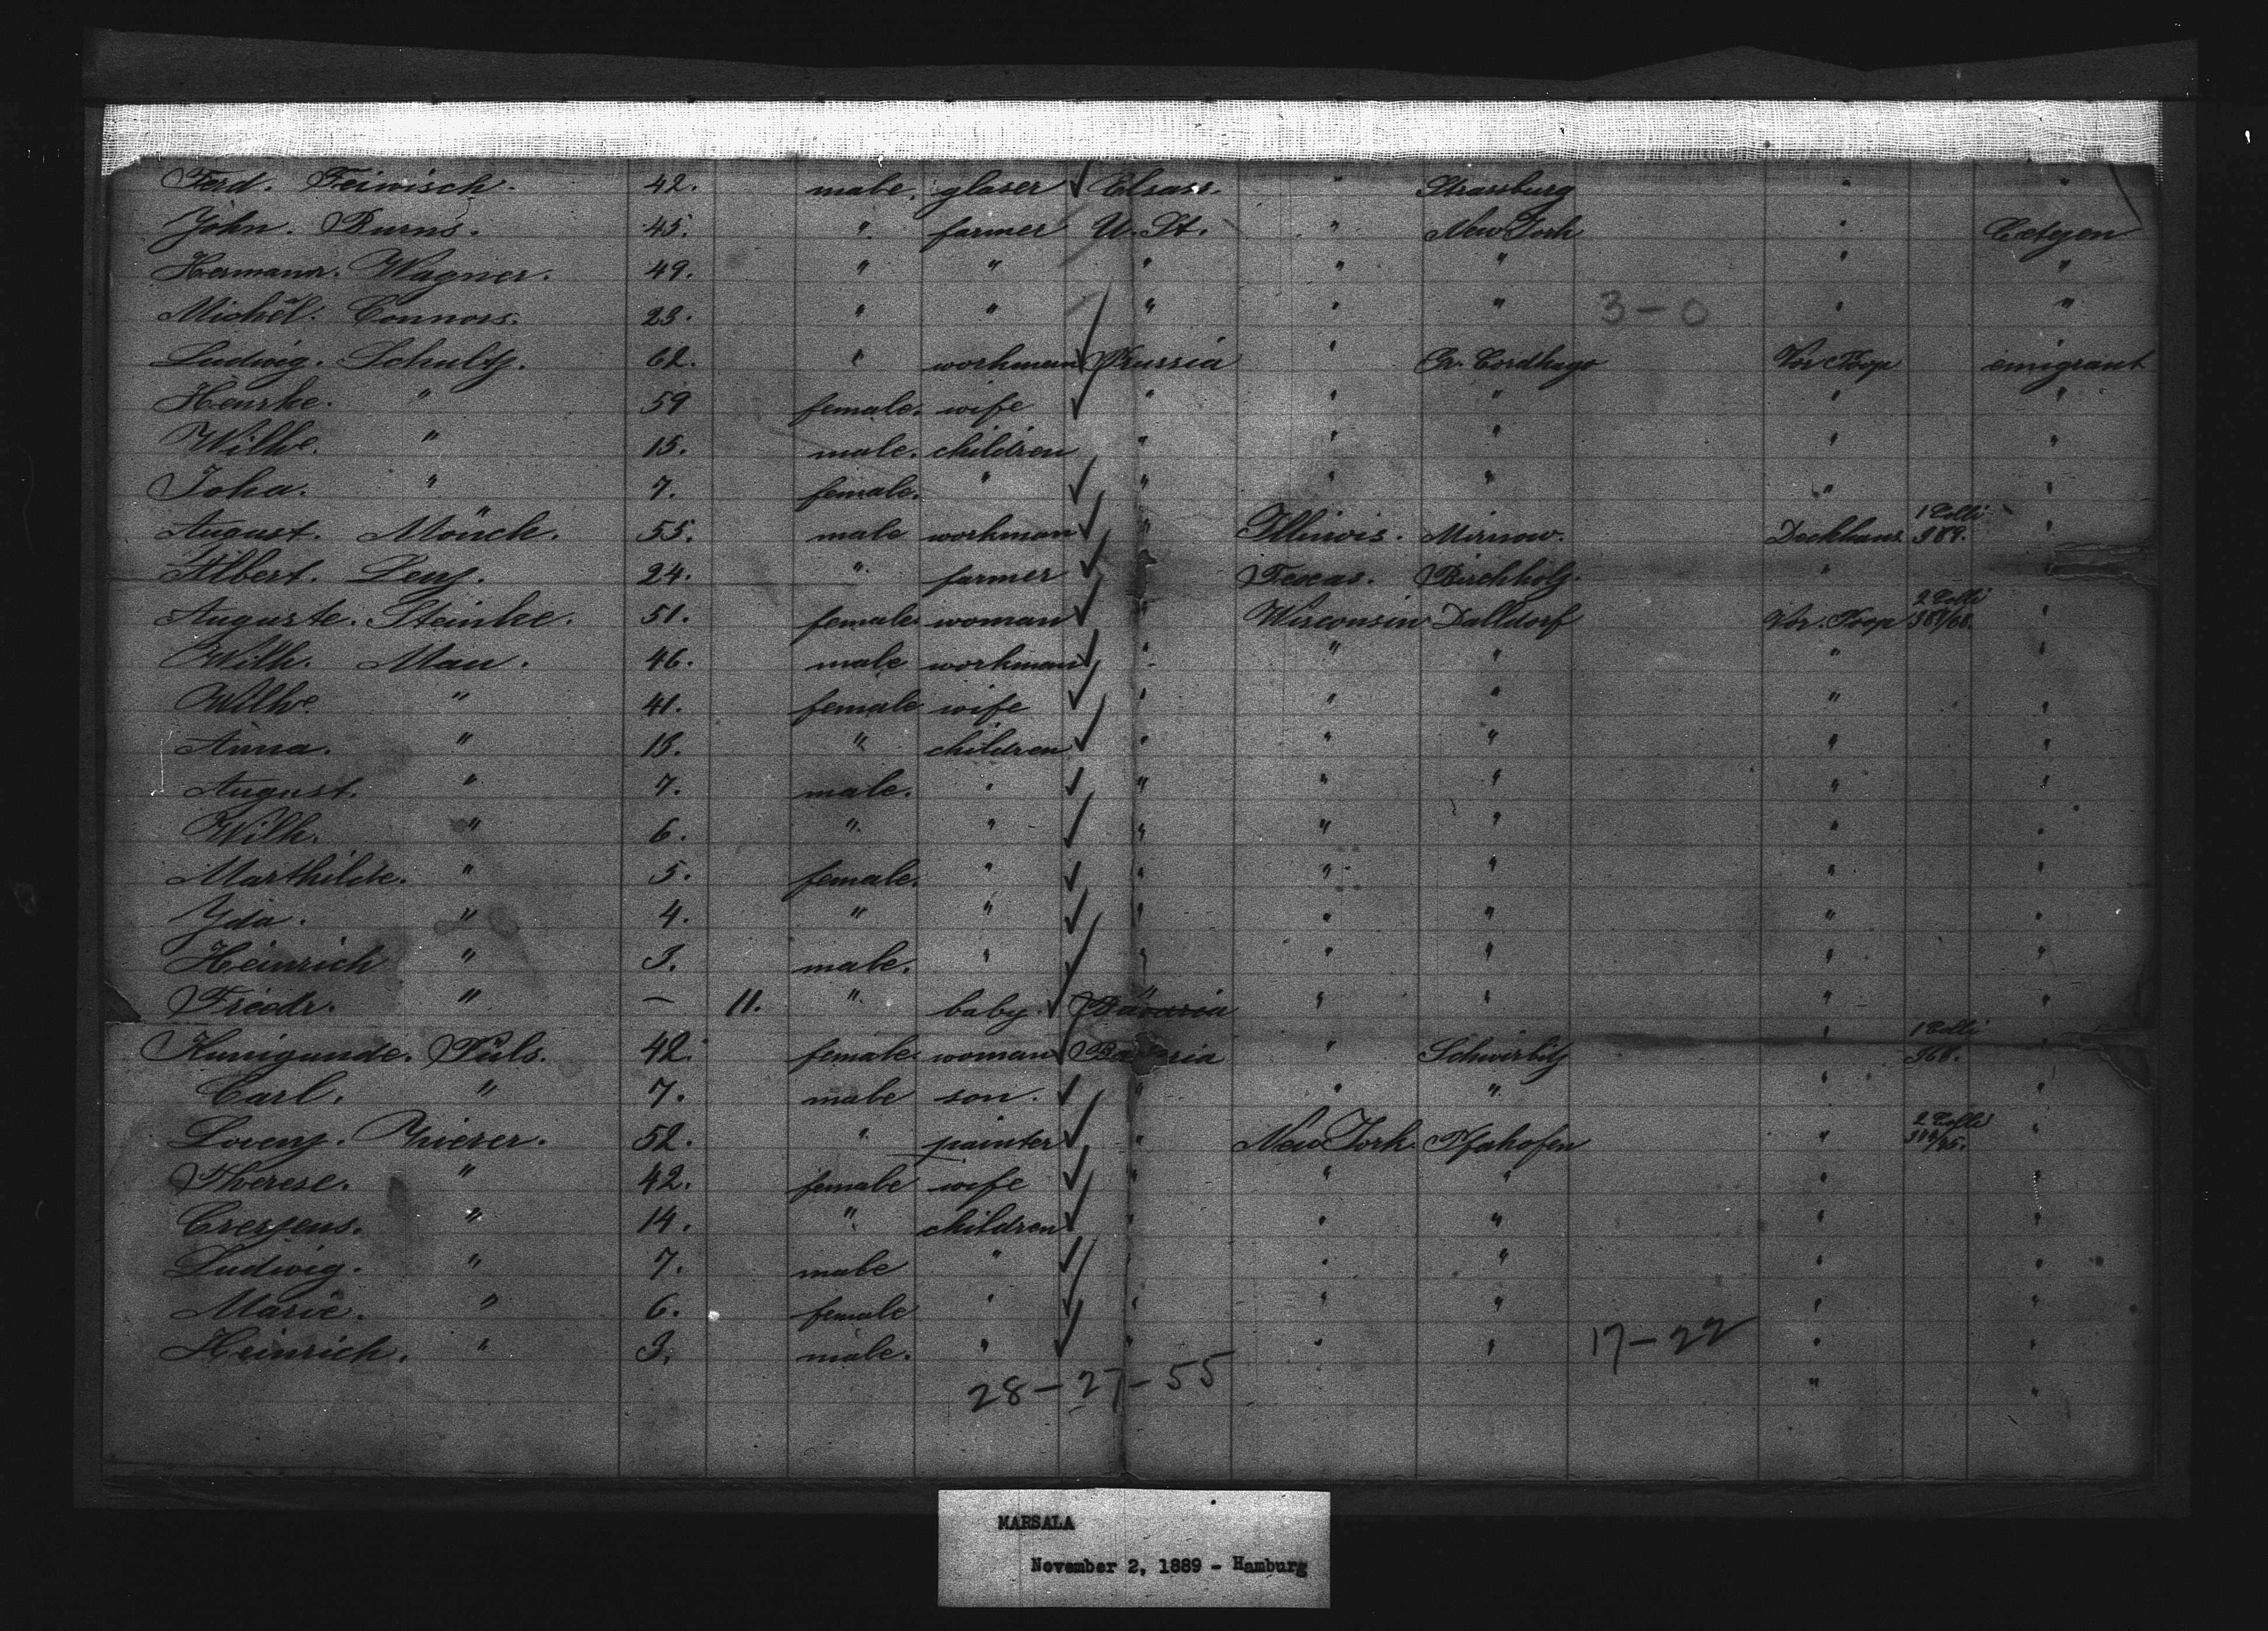 Ferd. Feinisch. 42. male. glaser Elsass. " Strassburg " "
John. Burns. 45. " farmer U. St. " New York "
Hermann. Wagner. 49. " " " " " " "
Michel. Connors. 23. " " " " " 3-0 " "
Ludwig. Schultz. 62. " workman Prussia " Gr. Cordhago Vor. Poop emigrant
Henrke. " 59 female. wife " " " " "
Wilhe. " 15. male. children " " " " "
Joha. " 7. female. " " " " " "
August. Mönch. 55. male workman " Illinois. Mirnow. Deckhaus. 1 Colli 389. "
Albert. Lenz. 24. " farmer Texas. Birchholz. "
Auguste. Steinke. 51. female. woman " Wisconsin Dalldorf Vor. Poop 2 Colli "
Wilh. Mau. 46. male workman " " " " "
Wilhe. " 41. female wife " " " " "
Anna. " 15. " children " " " " "
August. " 7. male. " " " " " "
Wilh. " 6. " " " " " " "
Marthilde. " 5. female. " " " " " "
Yda. " 4. " " " " " " "
Heinrich " 3. male. " " " " " "
Friedr. " — 11. " baby. Bavaria " " " "
Kunigunde. Püls. 42. female. woman Bavaria " Schwirbitz " 1 Colli 368. "
Carl. " 7. male son. " " " " "
Lorenz. Thierer. 52. " painter " New York. Pfahofen " 2 Colli "
Therese. " 42. female wife " " " " "
Creszens. " 14. " children " " " " "
Ludwig. " 7. male " " " " " "
Marie. " 6. female " " " " " "
Heinrich. " 3. male. " " " " 17-22 " "
28-27-55 " "
MARSALA
November 2, 1889 - Hamburg